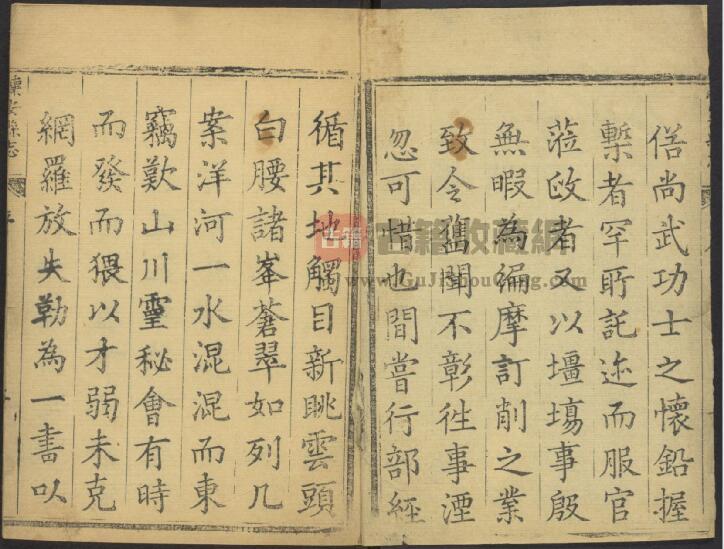 俗尚武功士之懷鉛握
槧者罕所託迹而服官
蒞政者又以壃場事殷
無暇為編摩訂削之業
致令舊聞不彰徃事湮
忽可惜也間嘗行部經
循其地觸目新眺雲頭
白腰諸峯蒼翠如列几
案洋河一水混混而東
竊歎山川靈秘會有時
而發而猥以才弱未克
網羅放失勒為一書以
懷安縣志
古籍
古籍收藏網
www.GuJiShouCang.com